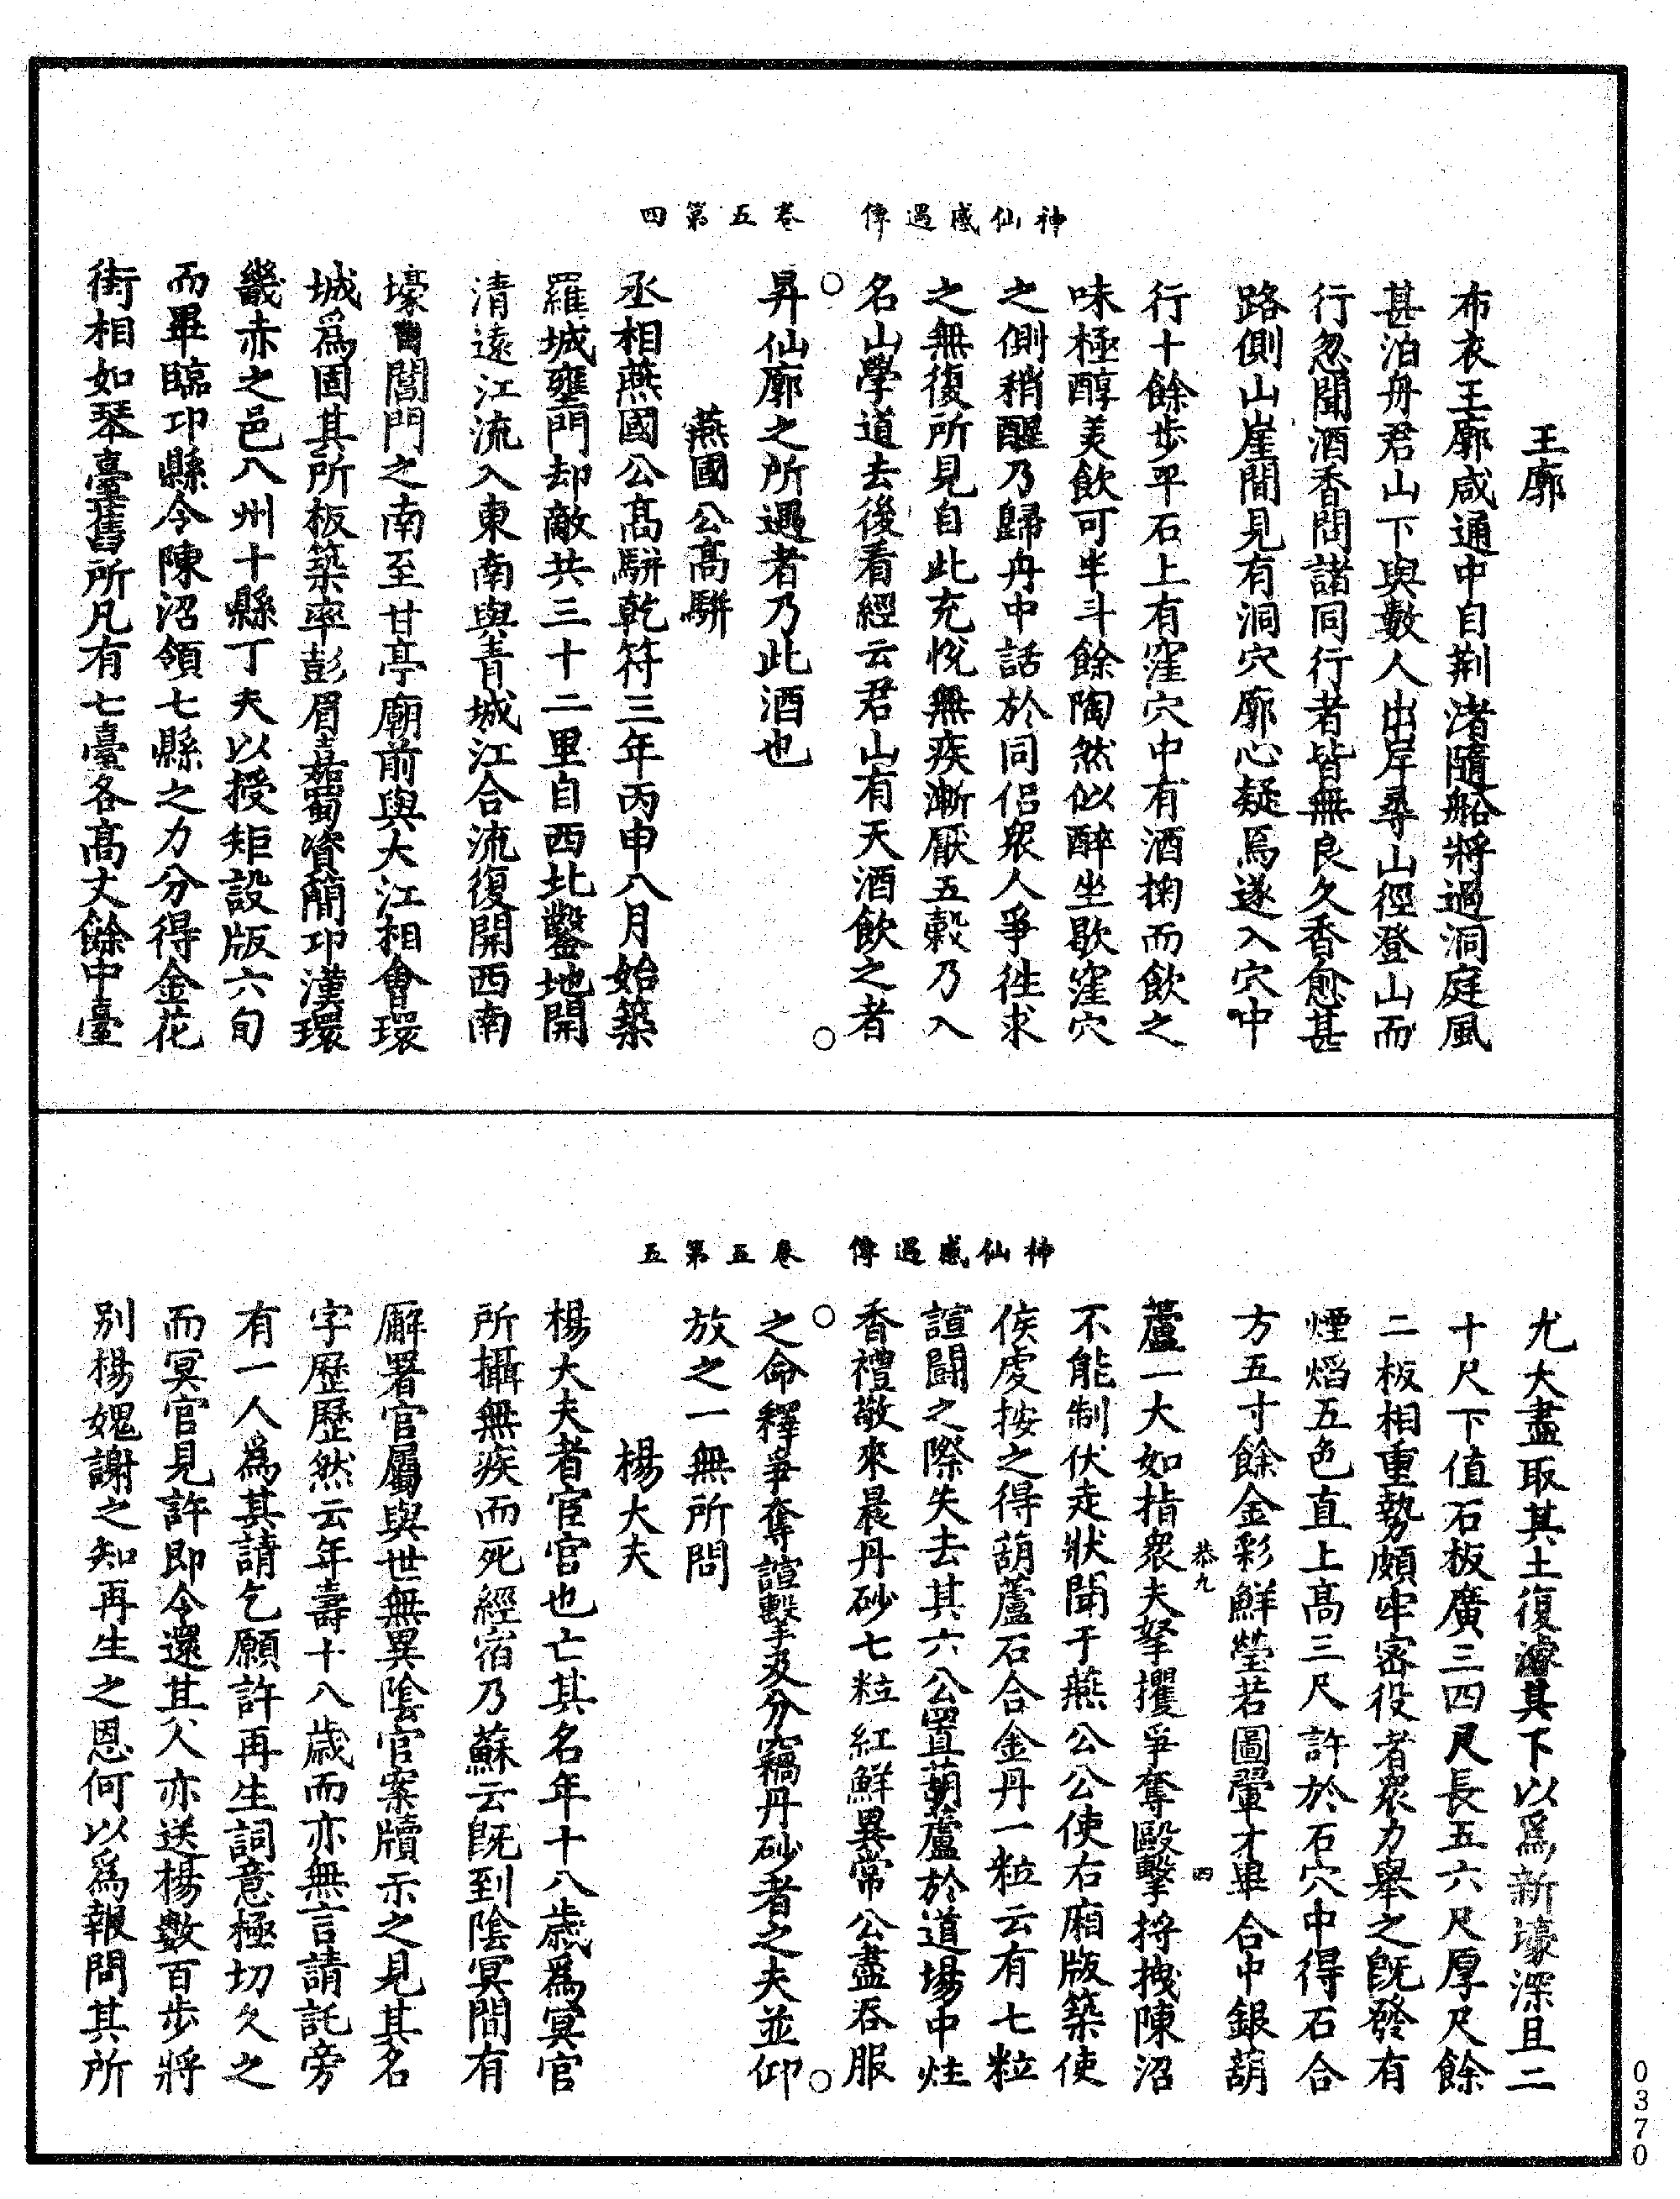 神仙感遇傳　卷五第四
王廓
布衣王廓咸通中自荆渚隨船將過洞庭風
甚泊舟君山下與數人出岸尋山徑登山而
行忽聞酒香問諸同行者皆無良久香愈甚
路側山崖間見有洞穴廓心疑焉遂入穴中
行十餘步平石上有窪穴中有酒掬而飲之
味極醇美飲可半斗餘陶然似醉坐歇窪穴
之側稍醒乃歸舟中話於同侣衆人爭徃求
之無復所見自此充悅無疾漸厭五穀乃入
名山學道去後看經云君山有天酒飲之者
昇仙廓之所遇者乃此酒也
燕國公高駢
丞相燕國公高駢乾符三年丙申八月始築
羅城壅門却敵共三十二里自西北鑿地開
清遠江流入東南與青城江合流復開西南
壕自閶門之南至甘亭廟前與大江相會環
城爲固其所板築率彭眉嘉蜀資簡卭漢環
畿赤之邑八州十縣丁夫以授矩設版六旬
而畢臨卭縣令陳沼領七縣之力分得金花
街相如琴臺舊所凡有七臺各高丈餘中臺
神仙感遇傳　卷五第五
尤大盡取其土復濬其下以爲新壕深且二
十尺下值石板廣三四尺長五六尺厚尺餘
二板相重勢頗牢宻役者衆力舉之旣發有
煙熖五色直上高三尺許於石穴中得石合
方五寸餘金彩鮮瑩若圖翬才畢合中銀葫
蘆一大如指衆夫拏攫爭奪毆擊捋拽陳沼
恭九　四
不能制伏走狀聞于燕公公使右廂版築使
侯䖍按之得葫蘆石合金丹一粒云有七粒
諠鬭之際失去其六公置葫蘆於道場中炷
香禮敬來晨丹砂七粒紅鮮異常公盡吞服
之命釋爭奪諠擊及分竊丹砂者之夫並仰
放之一無所問
楊大夫
楊大夫者宦官也亡其名年十八歲爲冥官
所攝無疾而死經宿乃蘇云旣到陰冥間有
廨署官屬與世無異陰官案牘示之見其名
字歷歷然云年壽十八歲而亦無言請託旁
有一人爲其請乞願許再生詞意極切久之
而冥官見許即令還其人亦送楊數百步將
別楊媿謝之知再生之恩何以爲報問其所
0370